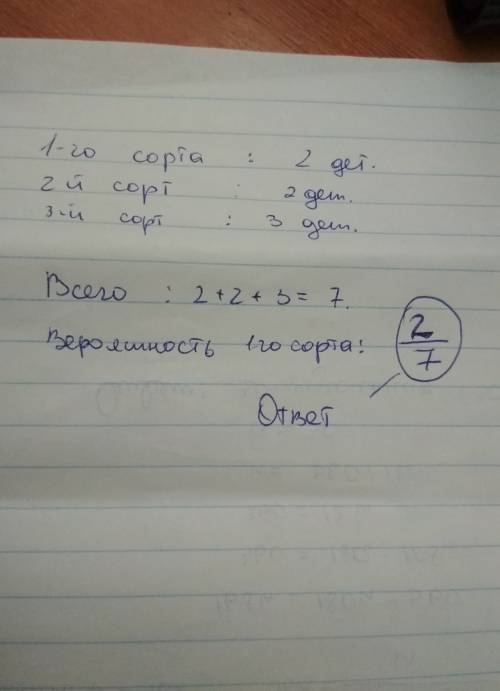 1-го сорта : 2 дет.
2-й сорт : 2 дет.
3-й сорт : 3 дет.
Всего : 2 + 2 + 3 = 7.
Вероятность 1-го сорта: 2/7
Ответ